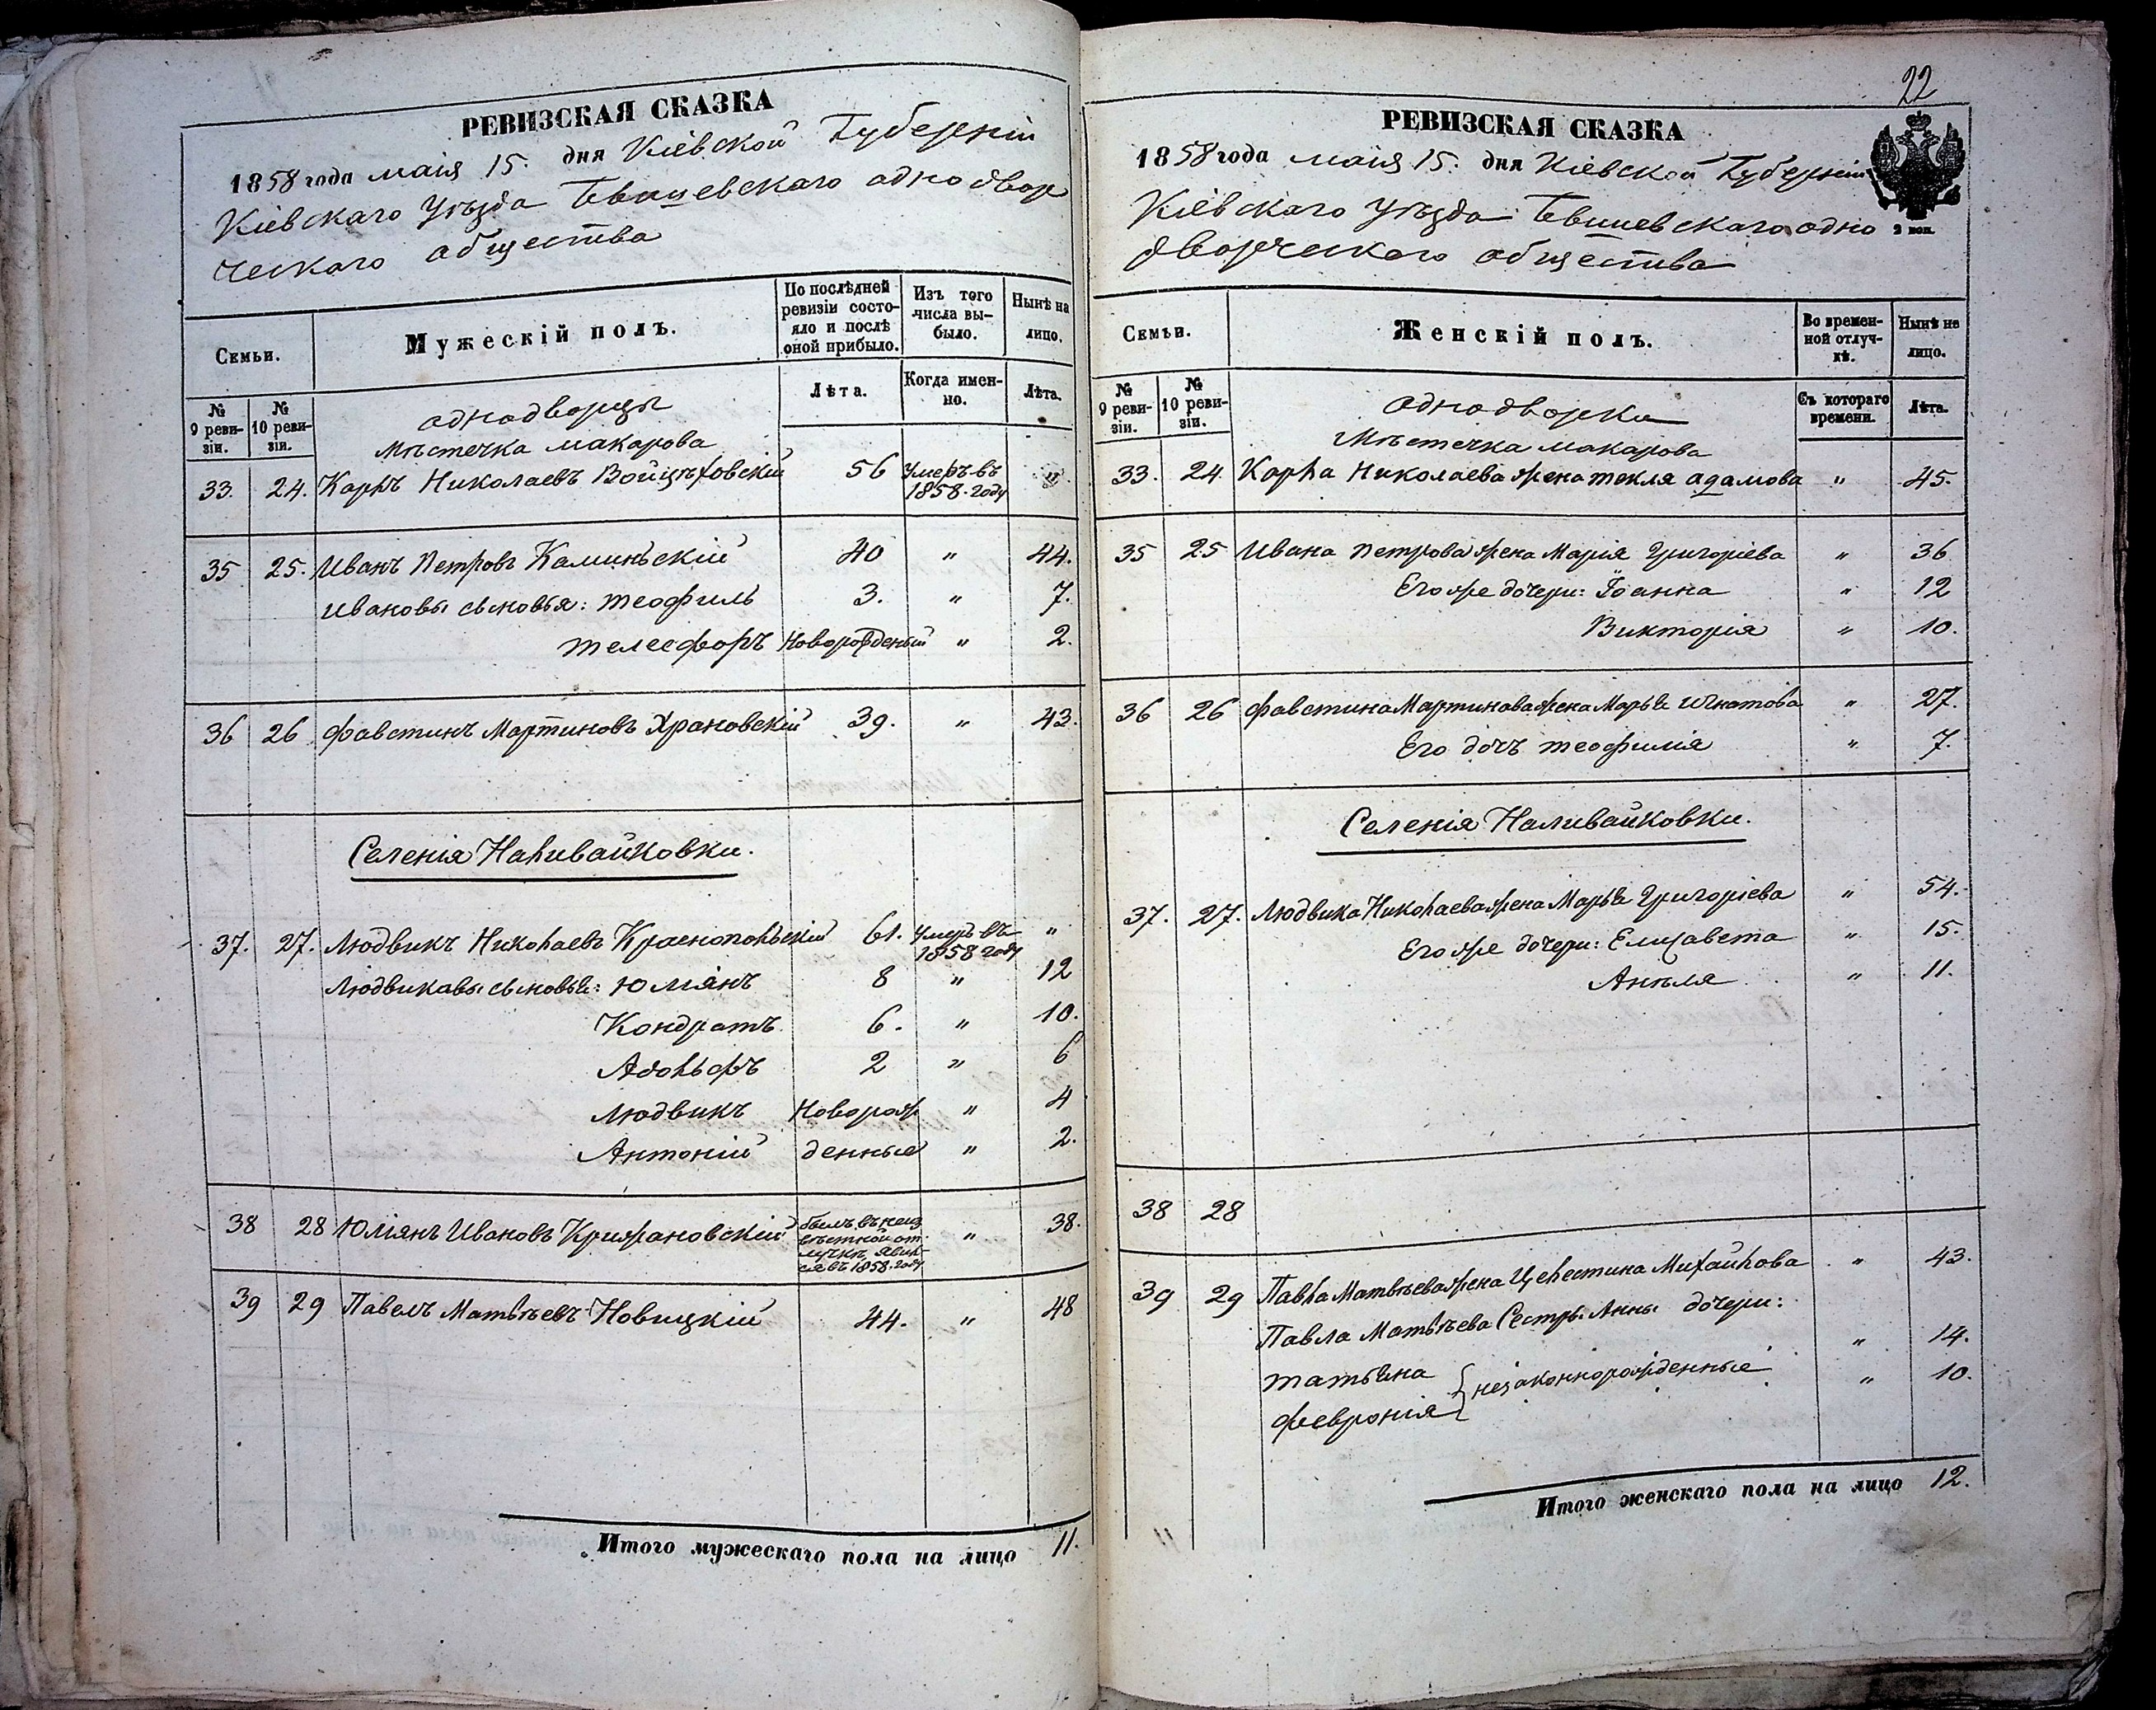 РЕВИЗСКАЯ СКАЗКА
1858 года маія 15. дня Кіевской Губерніи
Кіевскаго Уѣзда однодвор
ческаго общества
Семьи.
Мужескій полъ.
По послѣдней ревизіи состояло и послѣ оной прибыло.
Изъ того числа выбыло.
Нынѣ на лицо.
№ 9 ревизіи.
№ 10 ревизіи.
Лѣта.
Когда именно.
Лѣта.
однодворцы
Мѣстечка Макарова
33. 24. Карлъ Николаевъ Войцѣховскій 56 умеръ въ 1858. году "
35 25. Иванъ Петровъ Каминьскій 40 " 44.
Ивановы сыновья: Теофиль 3. " 7.
Телесфоръ Новорожденый " 2.
36 26 Фавстинъ Мартиновъ Храновскій 39. " 43.
Селенія Наливайковки.
37. 27. Людвикъ Николаевъ Краснопольскій 61. умеръ въ 1858 году "
Людвикавы сыновьи: Юліянъ 8 " 12
Кондратъ 6. " 10.
Адольфъ 2 " 6
Людвикъ Новорож " 4
Антоній денные " 2.
38 28 Юліянъ Ивановъ Крижановскій былъ въ неизвѣстной отлучкѣ явился въ 1858. году " 38.
39 29 Павелъ Матвѣевъ Новицкій 44. " 48
Итого мужескаго пола на лицо 11.
22
РЕВИЗСКАЯ СКАЗКА
1858 года маія 15. дня Кіевской Губерніи
Кіевскаго Уѣзда одно
дворческаго общества
2 коп.
Семьи.
Женскій полъ.
Во временной отлучкѣ.
Нынѣ на лицо.
№ 9 ревизіи.
№ 10 ревизіи.
Съ котораго времени.
Лѣта.
однодворки
Мѣстечка Макарова
33. 24. Карла Николаева жена Текля Адамова " 45.
35 25 Ивана Петрова жена Марія Григоріева " 36
Его же дочери: Іоанна " 12
Викторія " 10.
36 26 Фавстина Мартинова жена Марья Игнатова " 27.
Его дочъ Теофилія " 7.
Селенія Наливайковки.
37. 27. Людвика Николаева жена Марья Григоріева " 54.
Его же дочери: Елизавета " 15.
Анѣля " 11.
38 28
39 29 Павла Матвѣева жена Целестина Михайлова " 43.
Павла Матвѣева Сестры Анны дочери:
Татьяна " 14.
незаконнорожденные
Февронія " 10.
Итого женскаго пола на лицо 12.